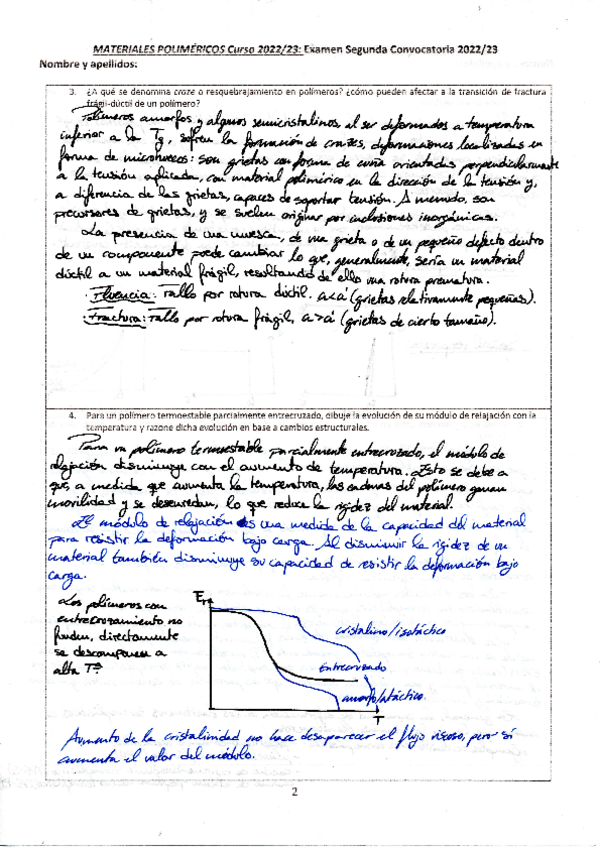 MATERIALES POLIMÉRICOS Curso 2022/23: Examen Segunda Convocatoria 2022/23
Nombre y apellidos:
3. ¿A qué se denomina craze o resquebrajamiento en polímeros? ¿cómo pueden afectar a la transición de fractura
frágil-dúctil de un polímero?
Polímeros amorfos y algunos semicristalinos, al ser deformados a temperatura
inferior a la Tg, sufren la formación de crazes, deformaciones localizadas en
forma de microhuecos: son grietas con forma de cuña orientadas perpendicularmente
a la tensión aplicada, con material polimérico en la dirección de la tensión y,
a diferencia de las grietas, capaces de soportar tensión. A menudo, son
precursores de grietas, y se suelen originar por inclusiones inorgánicas.
La presencia de una muesca, de una grieta o de un pequeño defecto dentro
de un componente puede cambiar lo que, generalmente, sería un material
dúctil a un material frágil, resultando de ello una rotura prematura.
· Fluencia: Fallo por rotura dúctil. a<a' (grietas relativamente pequeñas).
· Fractura: Fallo por rotura frágil, a>a' (grietas de cierto tamaño).
4. Para un polímero termoestable parcialmente entrecruzado, dibuje la evolución de su módulo de relajación con la
temperatura y razone dicha evolución en base a cambios estructurales.
Para un polímero termoestable parcialmente entrecruzado, el módulo de
relajación disminuye con el aumento de temperatura. Esto se debe a
que, a medida que aumenta la temperatura, las cadenas del polímero ganan
movilidad y se desenredan, lo que reduce la rigidez del material.
El módulo de relajación es una medida de la capacidad del material
para resistir la deformación bajo carga. Al disminuir la rigidez de un
material también disminuye su capacidad de resistir la deformación bajo
carga.
Los polímeros con
entrecruzamiento no
funden, directamente
se descomponen a
alta Tª
Er
cristalino/isotáctico
Entrecruzado
amorfo/atáctico
T
Aumento de la cristalinidad no hace desaparecer el flujo viscoso, pero sí
aumenta el valor del módulo.
2